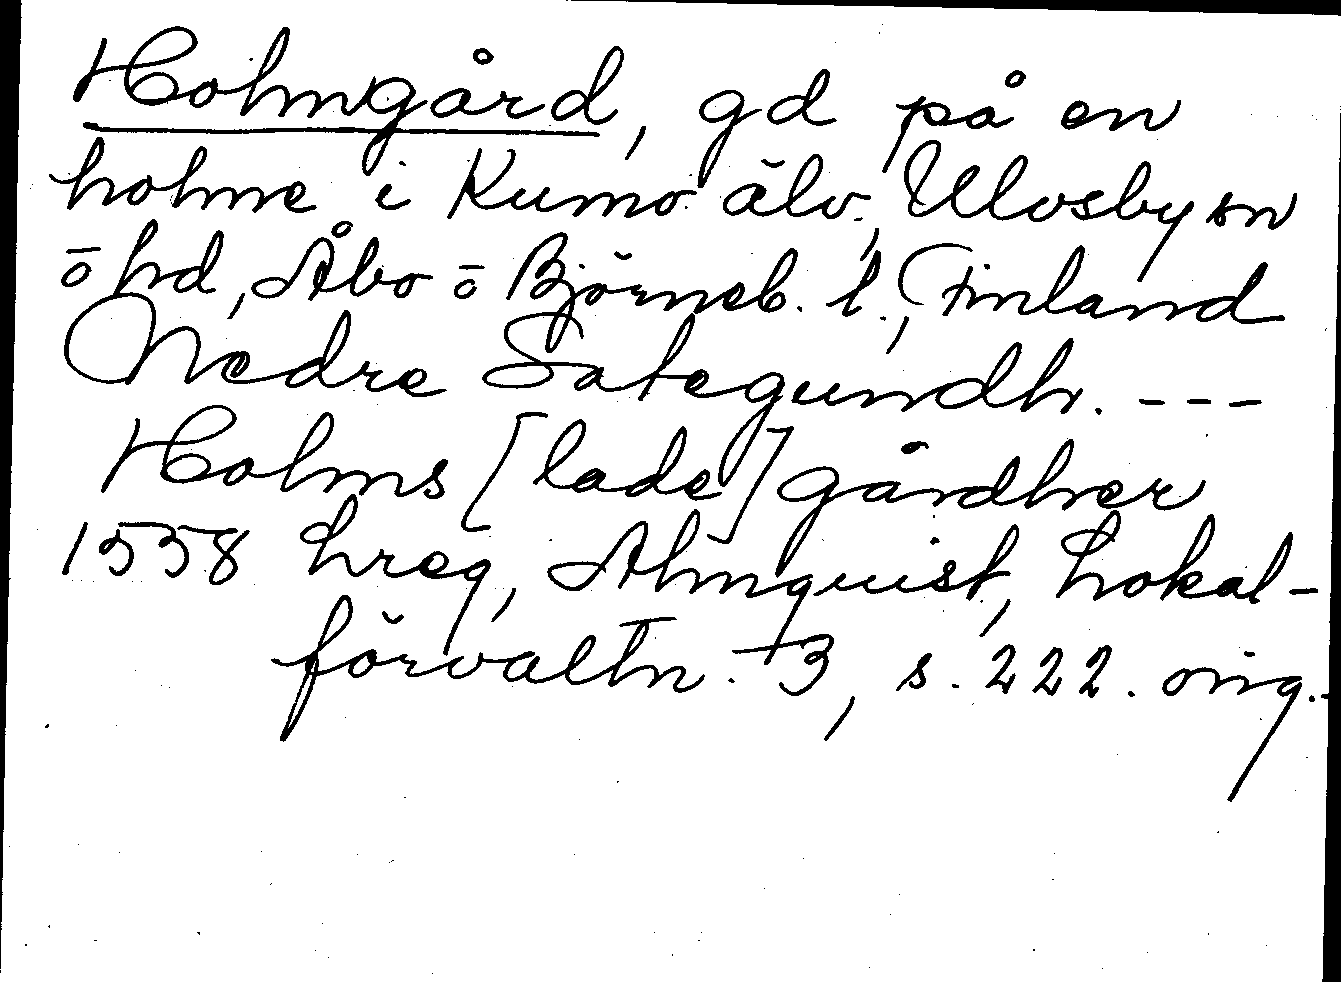 Holmgård, gd på en
holme i Kumo älv, Ulvsby sn
o hd, Åbo o Björneb. l., Finland
Nedre Sategundh. ---
Holms [lade] gårdher
1558 hreg, Almquist, Lokal-
förvaltn. 3, s. 222. orig.